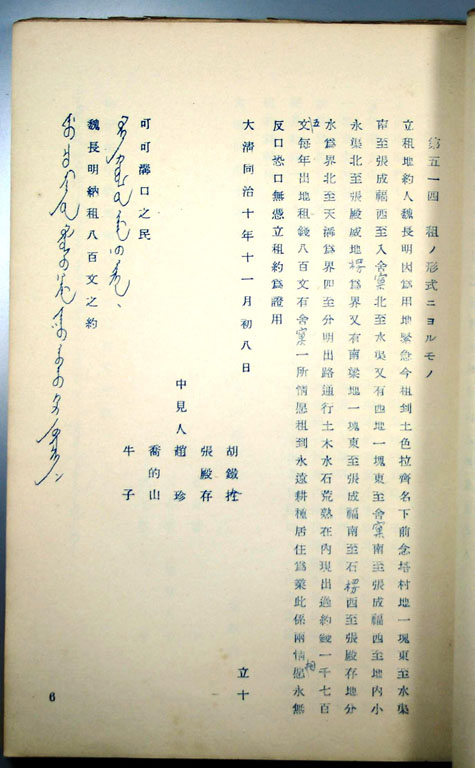 第五一四 租ノ形式ニヨルモノ
立租地約人魏長明因爲用地緊急今租到土色拉齊名下前念塔村地一塊東至水渠
南至張成福西至入舍窯北至水渠又有西地一塊東至舍窯南至張成福西至地內小
永渠北至張殿威地楞爲界又有南梁地一塊東至張成福南至石楞西至張殿存地分
水爲界北至天溝爲界四至分明出路通行土木水石荒熟在內現出過約錢一千七百
五
文每年出地租錢八百文有舍窯一所情愿租到永遠耕種居住爲業此係兩情愿永無
相
反口恐口無憑立租約爲證用
大淸同治十年十一月初八日 立十
胡鐵拴
張殿存
中見人 趙珍
喬的山
牛子
可可溝口之民
魏長明納租八百文之約
6